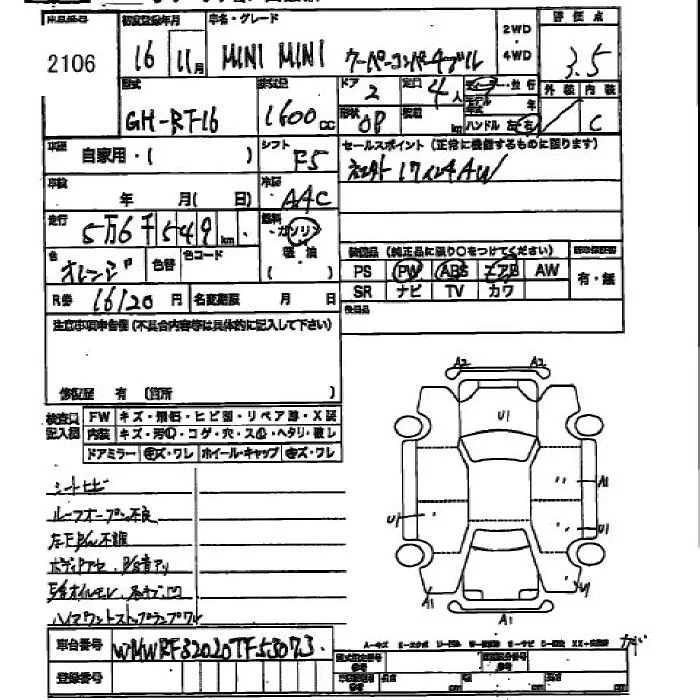 出品番号 初度登録年月 車名・グレード 2WD・4WD 評価点
2106 16 11月 MINI MINI クーパーコンバーチブル 3.5
型式 排気量 ドア 定員 外装 内装
GH-RF16 1600cc 2 4人 C
形状 OP 積載 kg ハンドル 左・右
車歴 シフト セールスポイント(正常に機能するものに限ります)
自家用・( ) F5 17インチAW
車検 冷房
年 月( 日) AAC
走行 燃料
5万6千549km ガソリン
軽油
( )
装備品(純正品に限り○をつけてください)
色 オレンジ 色替 色コード
PS PW ABS エアB AW 有・無
SR ナビ TV カワ
R券 16120円 名変期限 月 日
後日品
注意事項申告欄(不具合内容等は具体的に記入して下さい)
修復歴 有 (箇所 )
検査員記入欄
FW キズ・飛石・ヒビ割・リペア跡・X要
内装 キズ・汚れ・コゲ・穴・スレ・ヘタリ・破レ
ドアミラー キズ・ワレ ホイール・キャップ キズ・ワレ
A2 A2
U1
A1
U1 U1
A1 U1
A1
シートヒビ
ルーフオープン不良
左F P/W不調
車台番号 WMWRF32020TF53073
登録番号